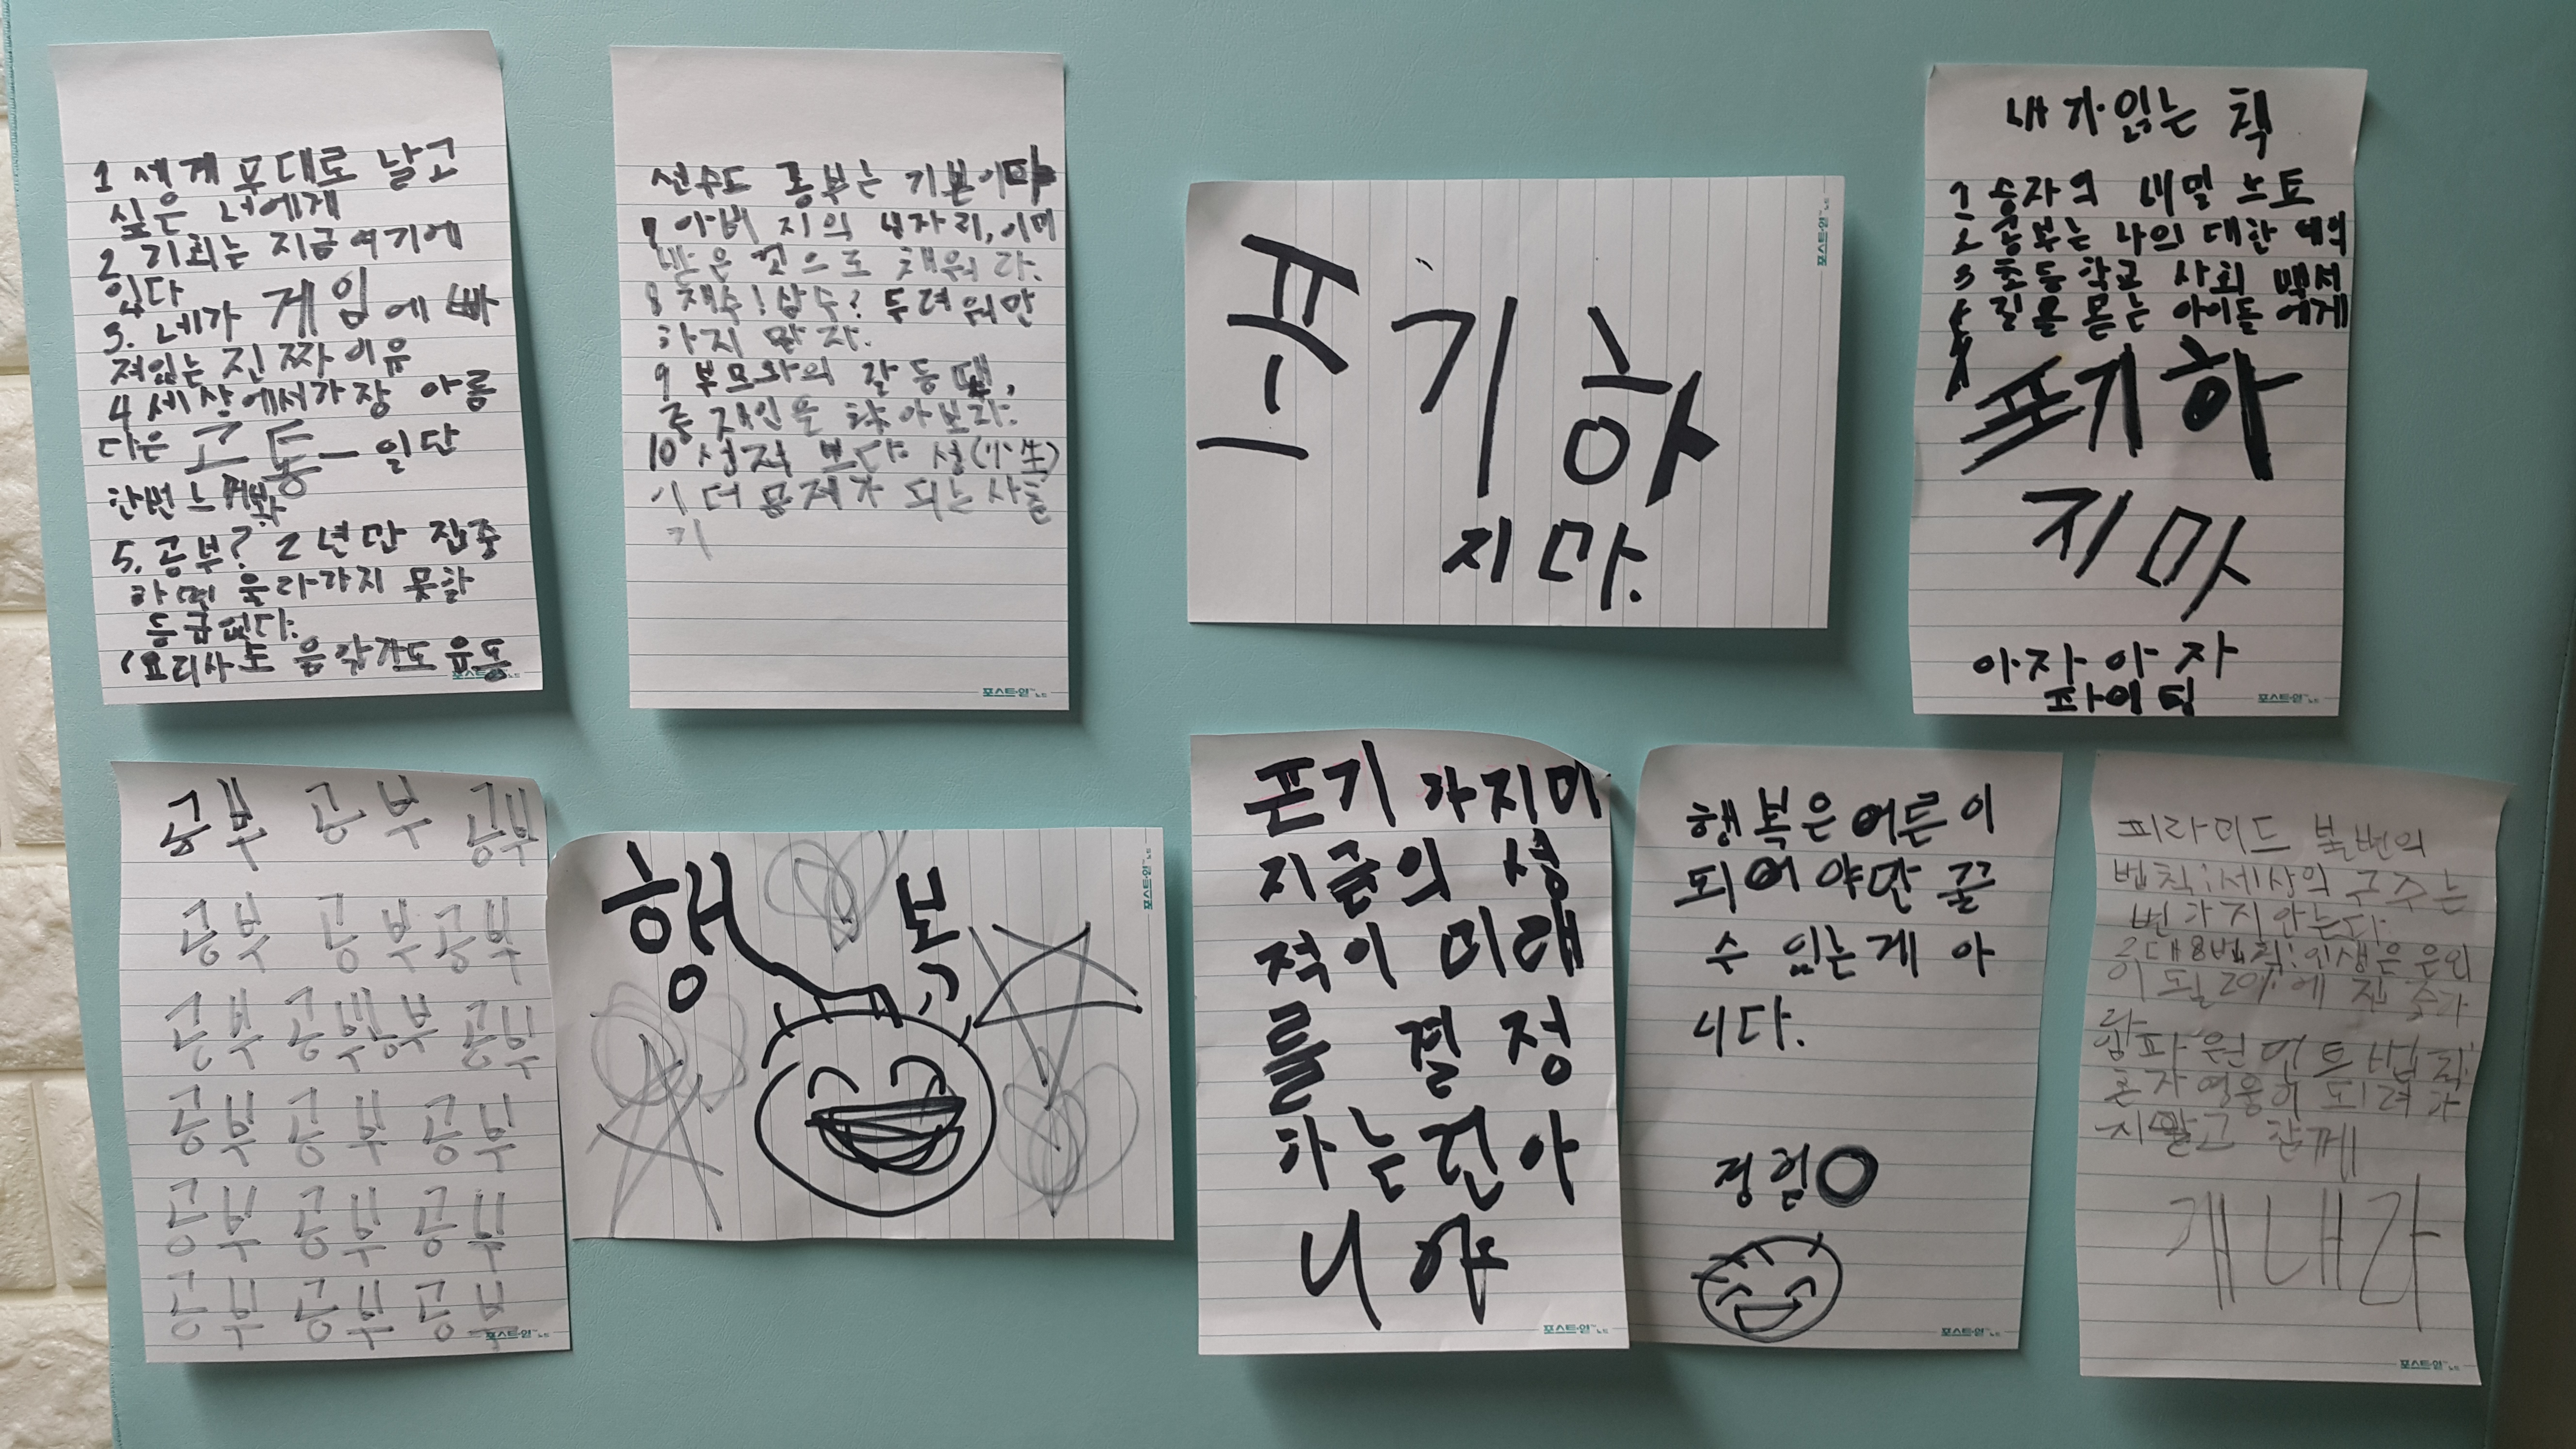 1 세계 무대로 날고
싶은 너에게
2 기회는 지금 여기에
있다
3. 네가 게임에 빠
져있는 진짜 이유
4 세상에서 가장 아름
다운 고통 - 일단
한번 느껴봐
5. 공부? 2년만 집중
하면 올라가지 못할
등급 없다.
요리사도 음악가도 운동
포스트-잇™ 노트
선수도 공부는 기본이다
7 아버지의 빈자리,
것으로 채워라.
8 재수! 삼수? 두려워만
하지 말자.
9 부모와의 갈등 땐,
중재인을 찾아보라.
10 성적 보다 성(小生)
이 더 문제가 되는 사춘
기
포스트-잇™ 노트
포기하
지마.
포스트-잇™ 노트
내가 읽는 책
1 승자의 비밀 노트
2 공부는 나의 대한 예의
3 초등학교 사회 백서
4 길을 묻는 아이들에게
포기하
지마
아자아자
파이팅
포스트-잇™ 노트
공부 공부 공부
공부 공부 공부
공부 공부 공부 공부
공부 공부 공부
공부 공부 공부
공부 공부 공부
포스트-잇™ 노트
행복
포스트-잇™ 노트
포기 하지마
지금의 성
적이 미래
를 결정
하는건 아
니야
포스트-잇™ 노트
행복은 어른이
되어야만 꿀
수 있는게 아
니다.
정힘
포스트-잇™ 노트
피라미드 불변의
법칙: 세상의 구조는
변하지 안는다
2대8법칙: 인생은
20%에 집중하
라
임파원먼트 법칙:
혼자 영웅이 되려 하
지 말고 함께
해내라
포스트-잇™ 노트